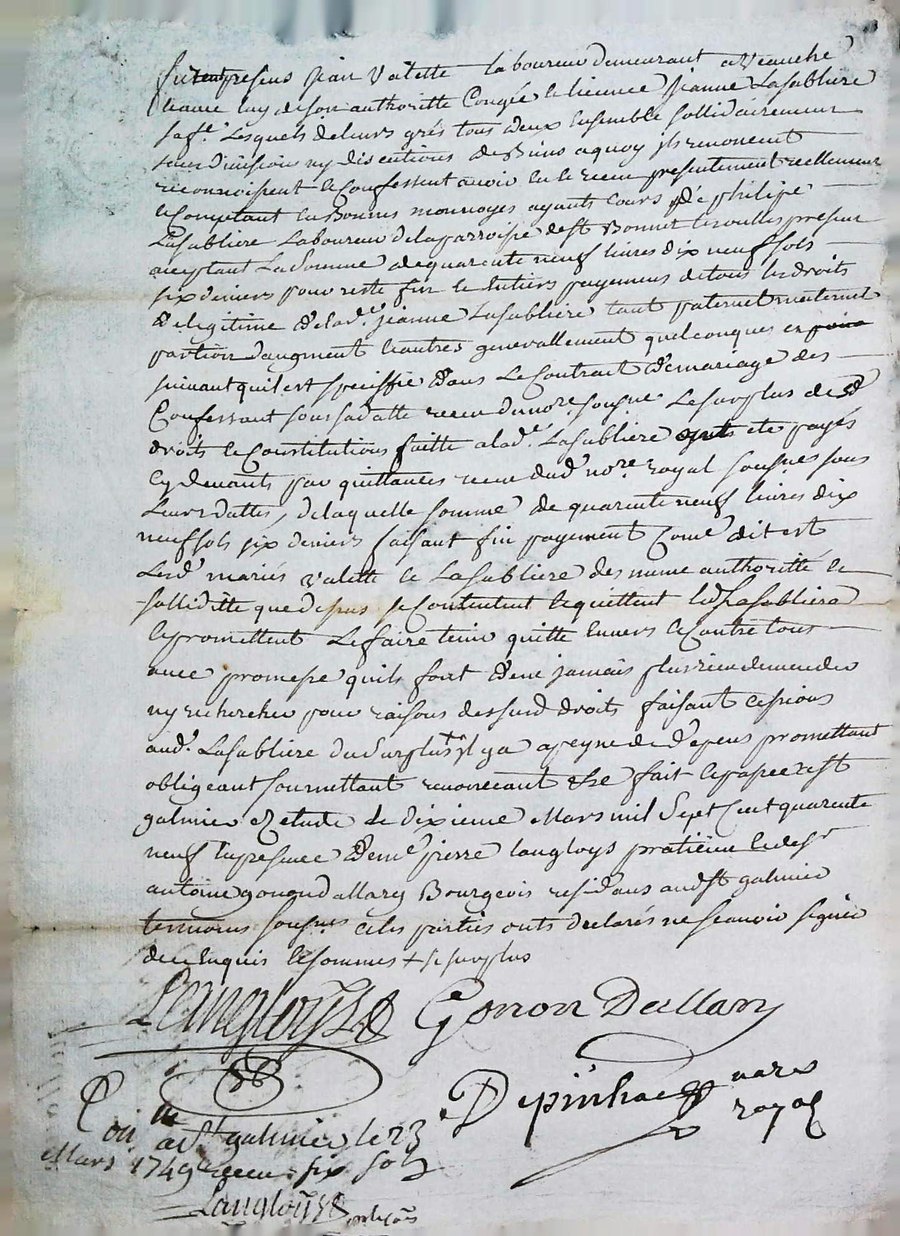 furent presens Jean Valette laboureur demeurant a Veauche
sa fe. Lesquels de leurs grés tous deux Ensemble sollidairement
sans division ny discutions de Biens a quoy ils renoncent
reconnoissent et Confessent avoir Eu et receu presentement reellement
et Comptant En Bonnes monnoyes ayants Cours de philipe
Lasabliere Laboureur de la parroisse de St Bonnet les oulles present
acceptant La Somme de quarente neuf livres dix neuf sols
six deniers pour reste fin et Entiers payement de tous les droits
de legitime de lad. jeanne Lasabliere tant paternel maternel
portion daugment Et autres generallement quelconques
suivant quil est speciffié dans Le Contrat de mariage des
Confessant sous sa datte receu du nore. sousne. Le surplus desd
droits et Constitutions faitte a lad. Lasabliere ete payés
Cy devants par quittances receue dud nore royal sousne sous
Leurs dattes, de laquelle somme de quarente neuf livres dix
neuf sols six deniers faisant fin payement Come dit est
Lesd. mariés Valette et Lasabliere des meme authoritté et
solliditte que dessus se Contentent et quittent led Lasabliere
et promettent Le faire tenir quitte Envers et Contre tous
avec promesse quils font de ne jamais plus rien demender
ny rechercher pour raisons des susd droits faisant cessions
aud. Lasabliere du Surplus sil y a a peyne de Depens promettant
obligeant soumettant renonceant &c fait et passe a St
galmier Etude le dixieme Mars mil Sept Cent quarente
neuf En presence de me. pierre langloys pratitien et de sr
antoine gonon dallary Bourgeois residans aud St galmier
temoins sousnes et les parties onts declarés ne scavoir signer
de ce Enquis et sommes + se surplus
Langloys Gonon Dallary
Depinhac nore
royal
Con lle
a St galmier le 23
Mars 1749 receu six sols
Langloys